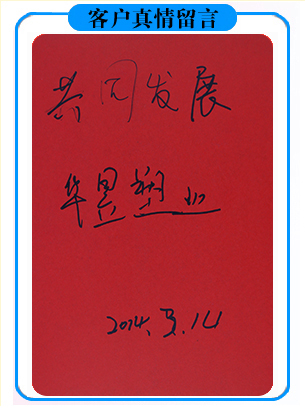 客户真情留言
共同发展
华昱塑业
2014.3.14